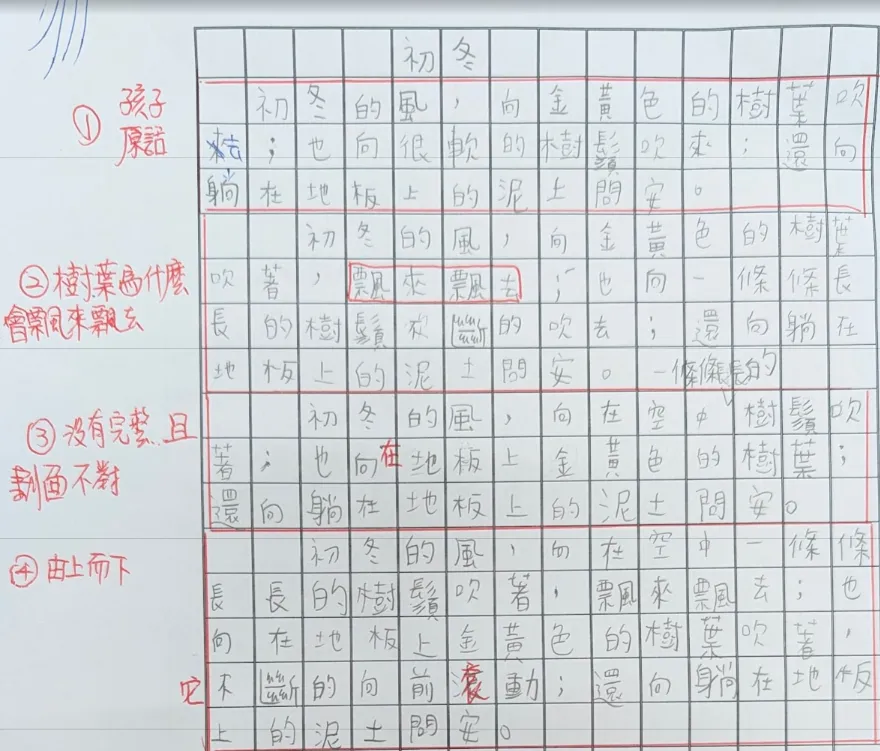 初冬
① 孩子
原話
初冬的風，向金黃色的樹葉吹
來；也向很軟的樹鬚吹來；還向
躺在地板上的泥土問安。
初冬的風，向金黃色的樹葉
② 樹葉為什麼
會飄來飄去
吹著，飄來飄去；也向一條條長
長的樹鬚不斷的吹去；還向躺在
地板上的泥土問安。一條條長長的
③ 沒有完整且
對面不對
初冬的風，向在空中樹鬚吹
著；也向在地板上金黃色的樹葉；
還向躺在地板上的泥土問安。
④ 由上而下
初冬的風，向在空中一條條
長長的樹鬚吹著，飄來飄去；也
向在地板上金黃色的樹葉吹著，
它不斷的向前滾動；還向躺在地板
上的泥土問安。